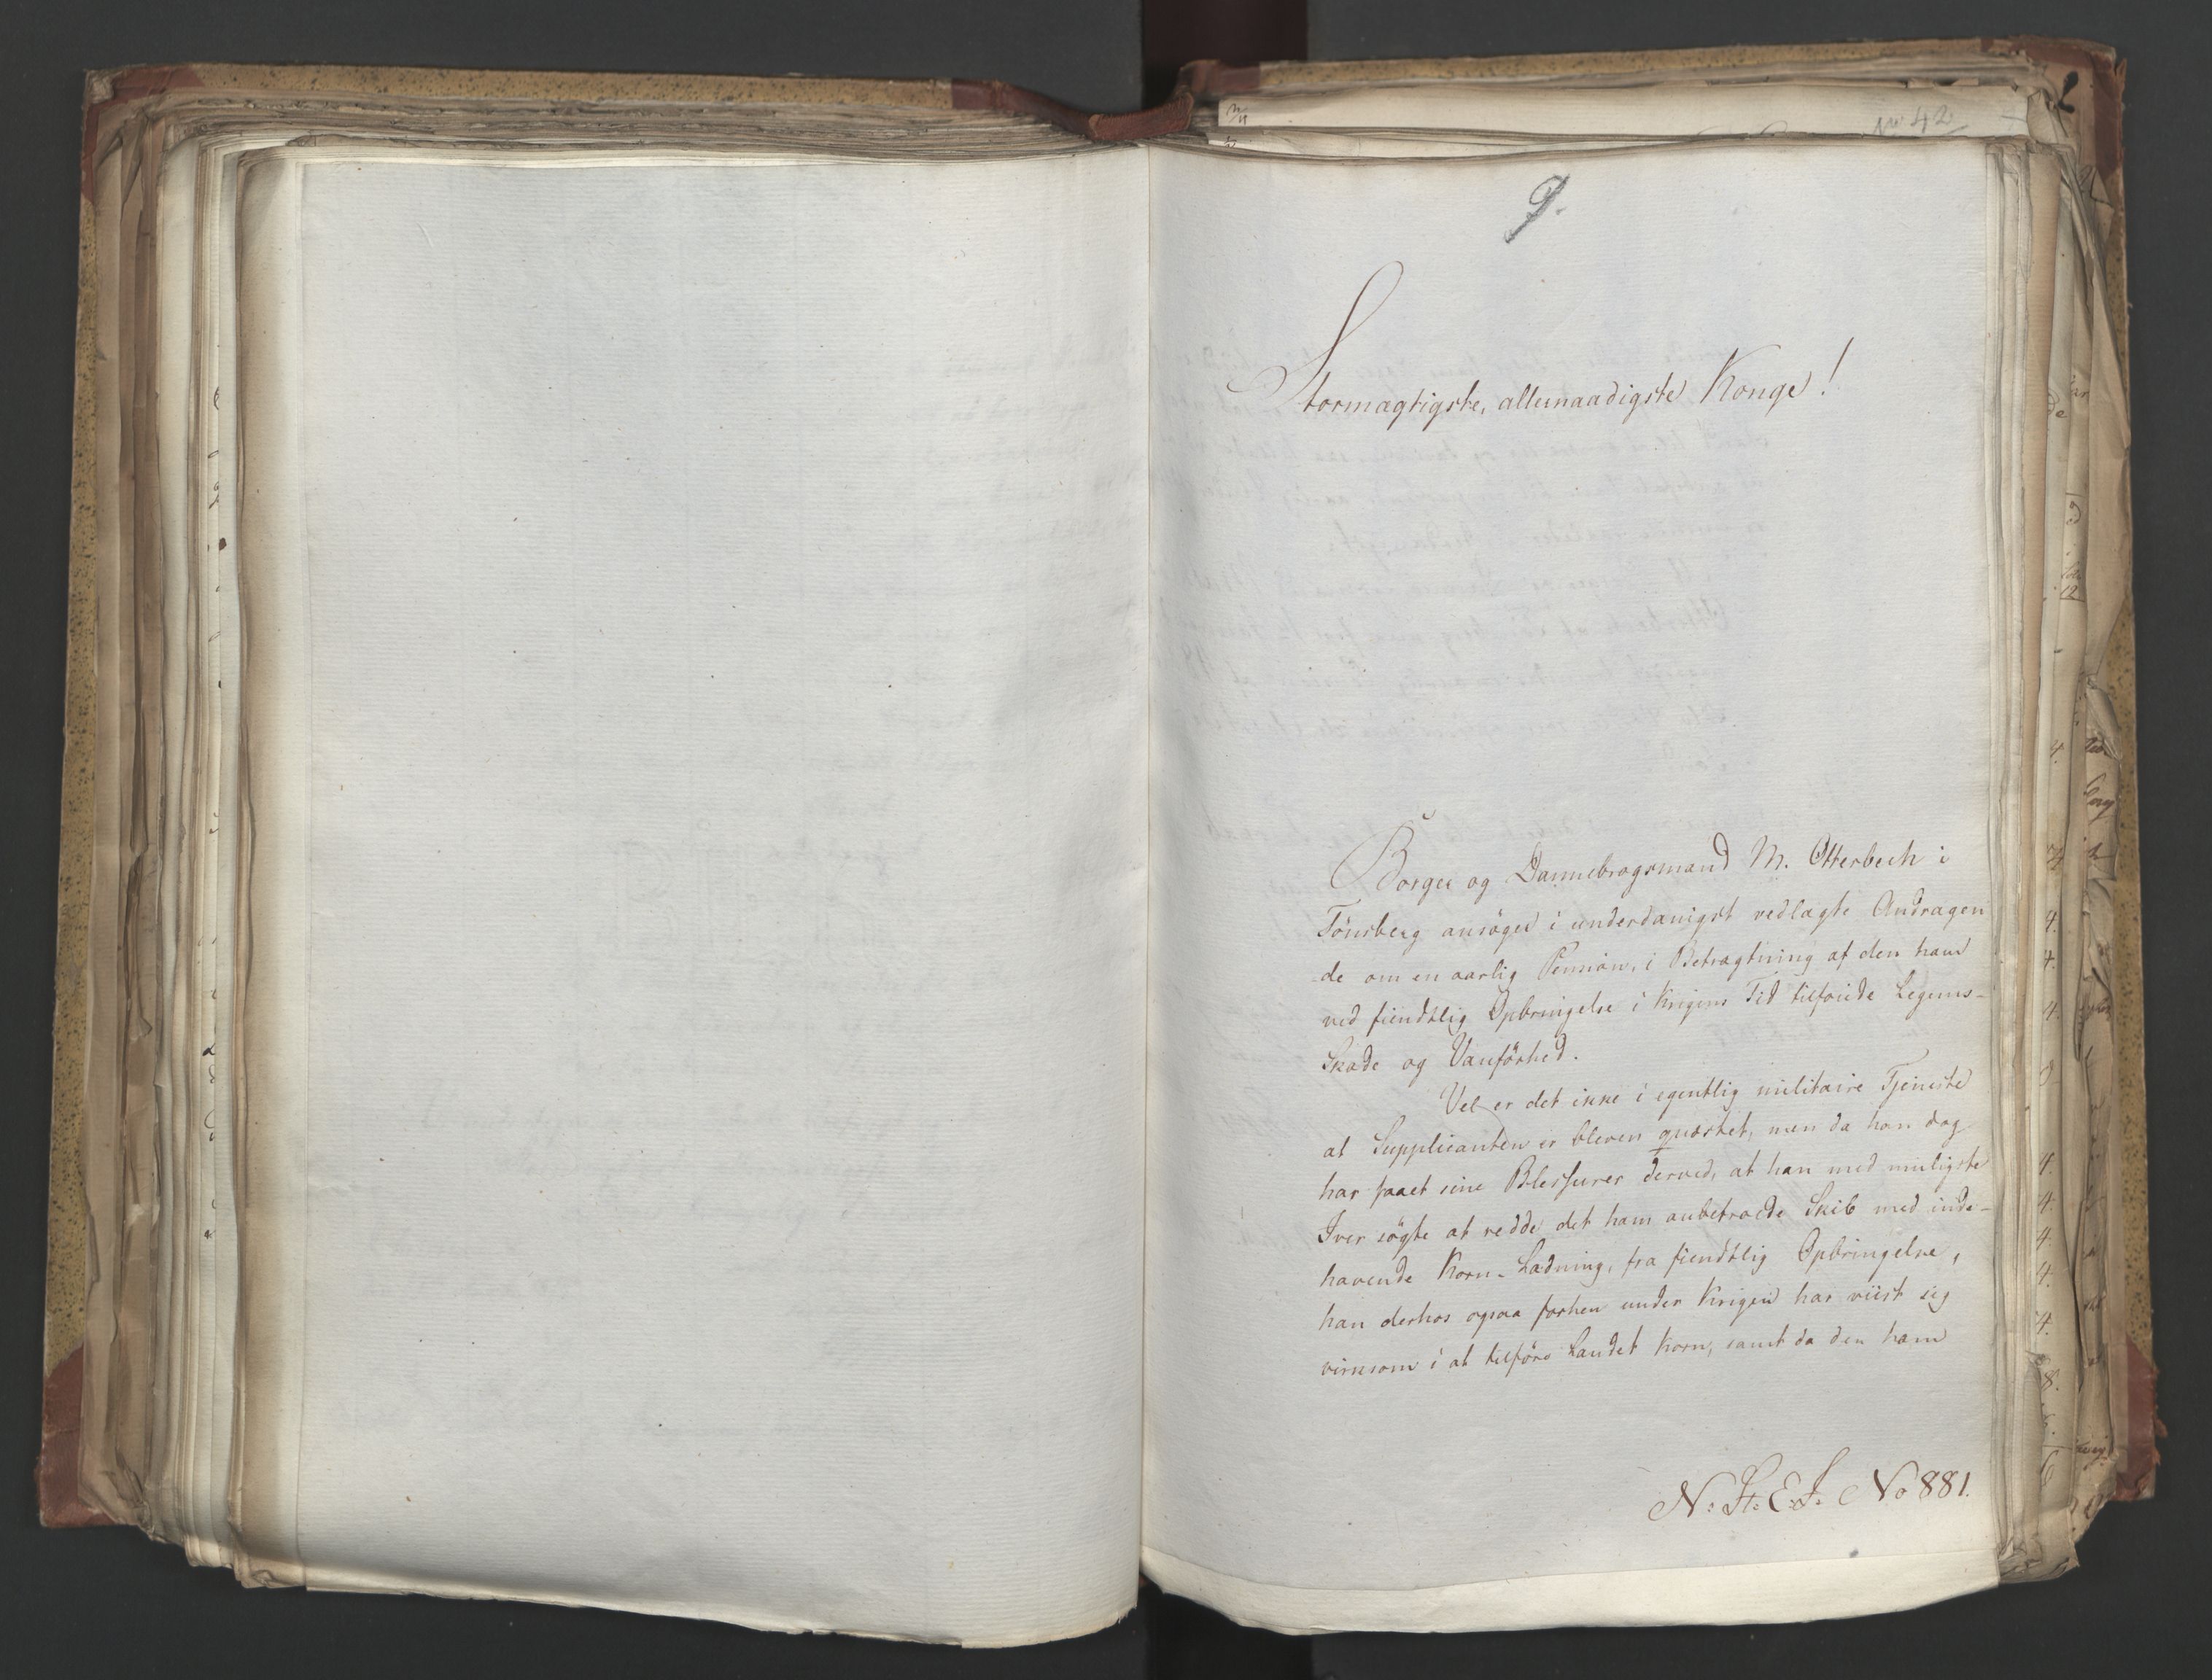 No 42
9.
Stormægtigste, allernaadigste Konge!
Borger og Dannebrogsmand M. Otterbech i
Tönsberg ansöger i underdanigst vedlagte Andragen
de om en aarlig Pension, i Betragtning af den ham
ved fiendtlig Opbringelse i Krigens Tid tilföiede Legems-
Skade og Vanförhed.
Vel er det ikke i egentlig militaire Tjeneste
at Supplicanten er bleven qvæstet, men da han dog
har faaet sine Blessurer derved, at han med muligste
Iver sögte at redde det ham anbetroede Skib med inde-
havende Korn-Ladning, fra fiendtlig Opbringelse,
han derhos ogsaa forhen under Krigen har viist sig
virksom i at tilföre Landet Korn, samt da den ham
N: St: E: J: No 881.